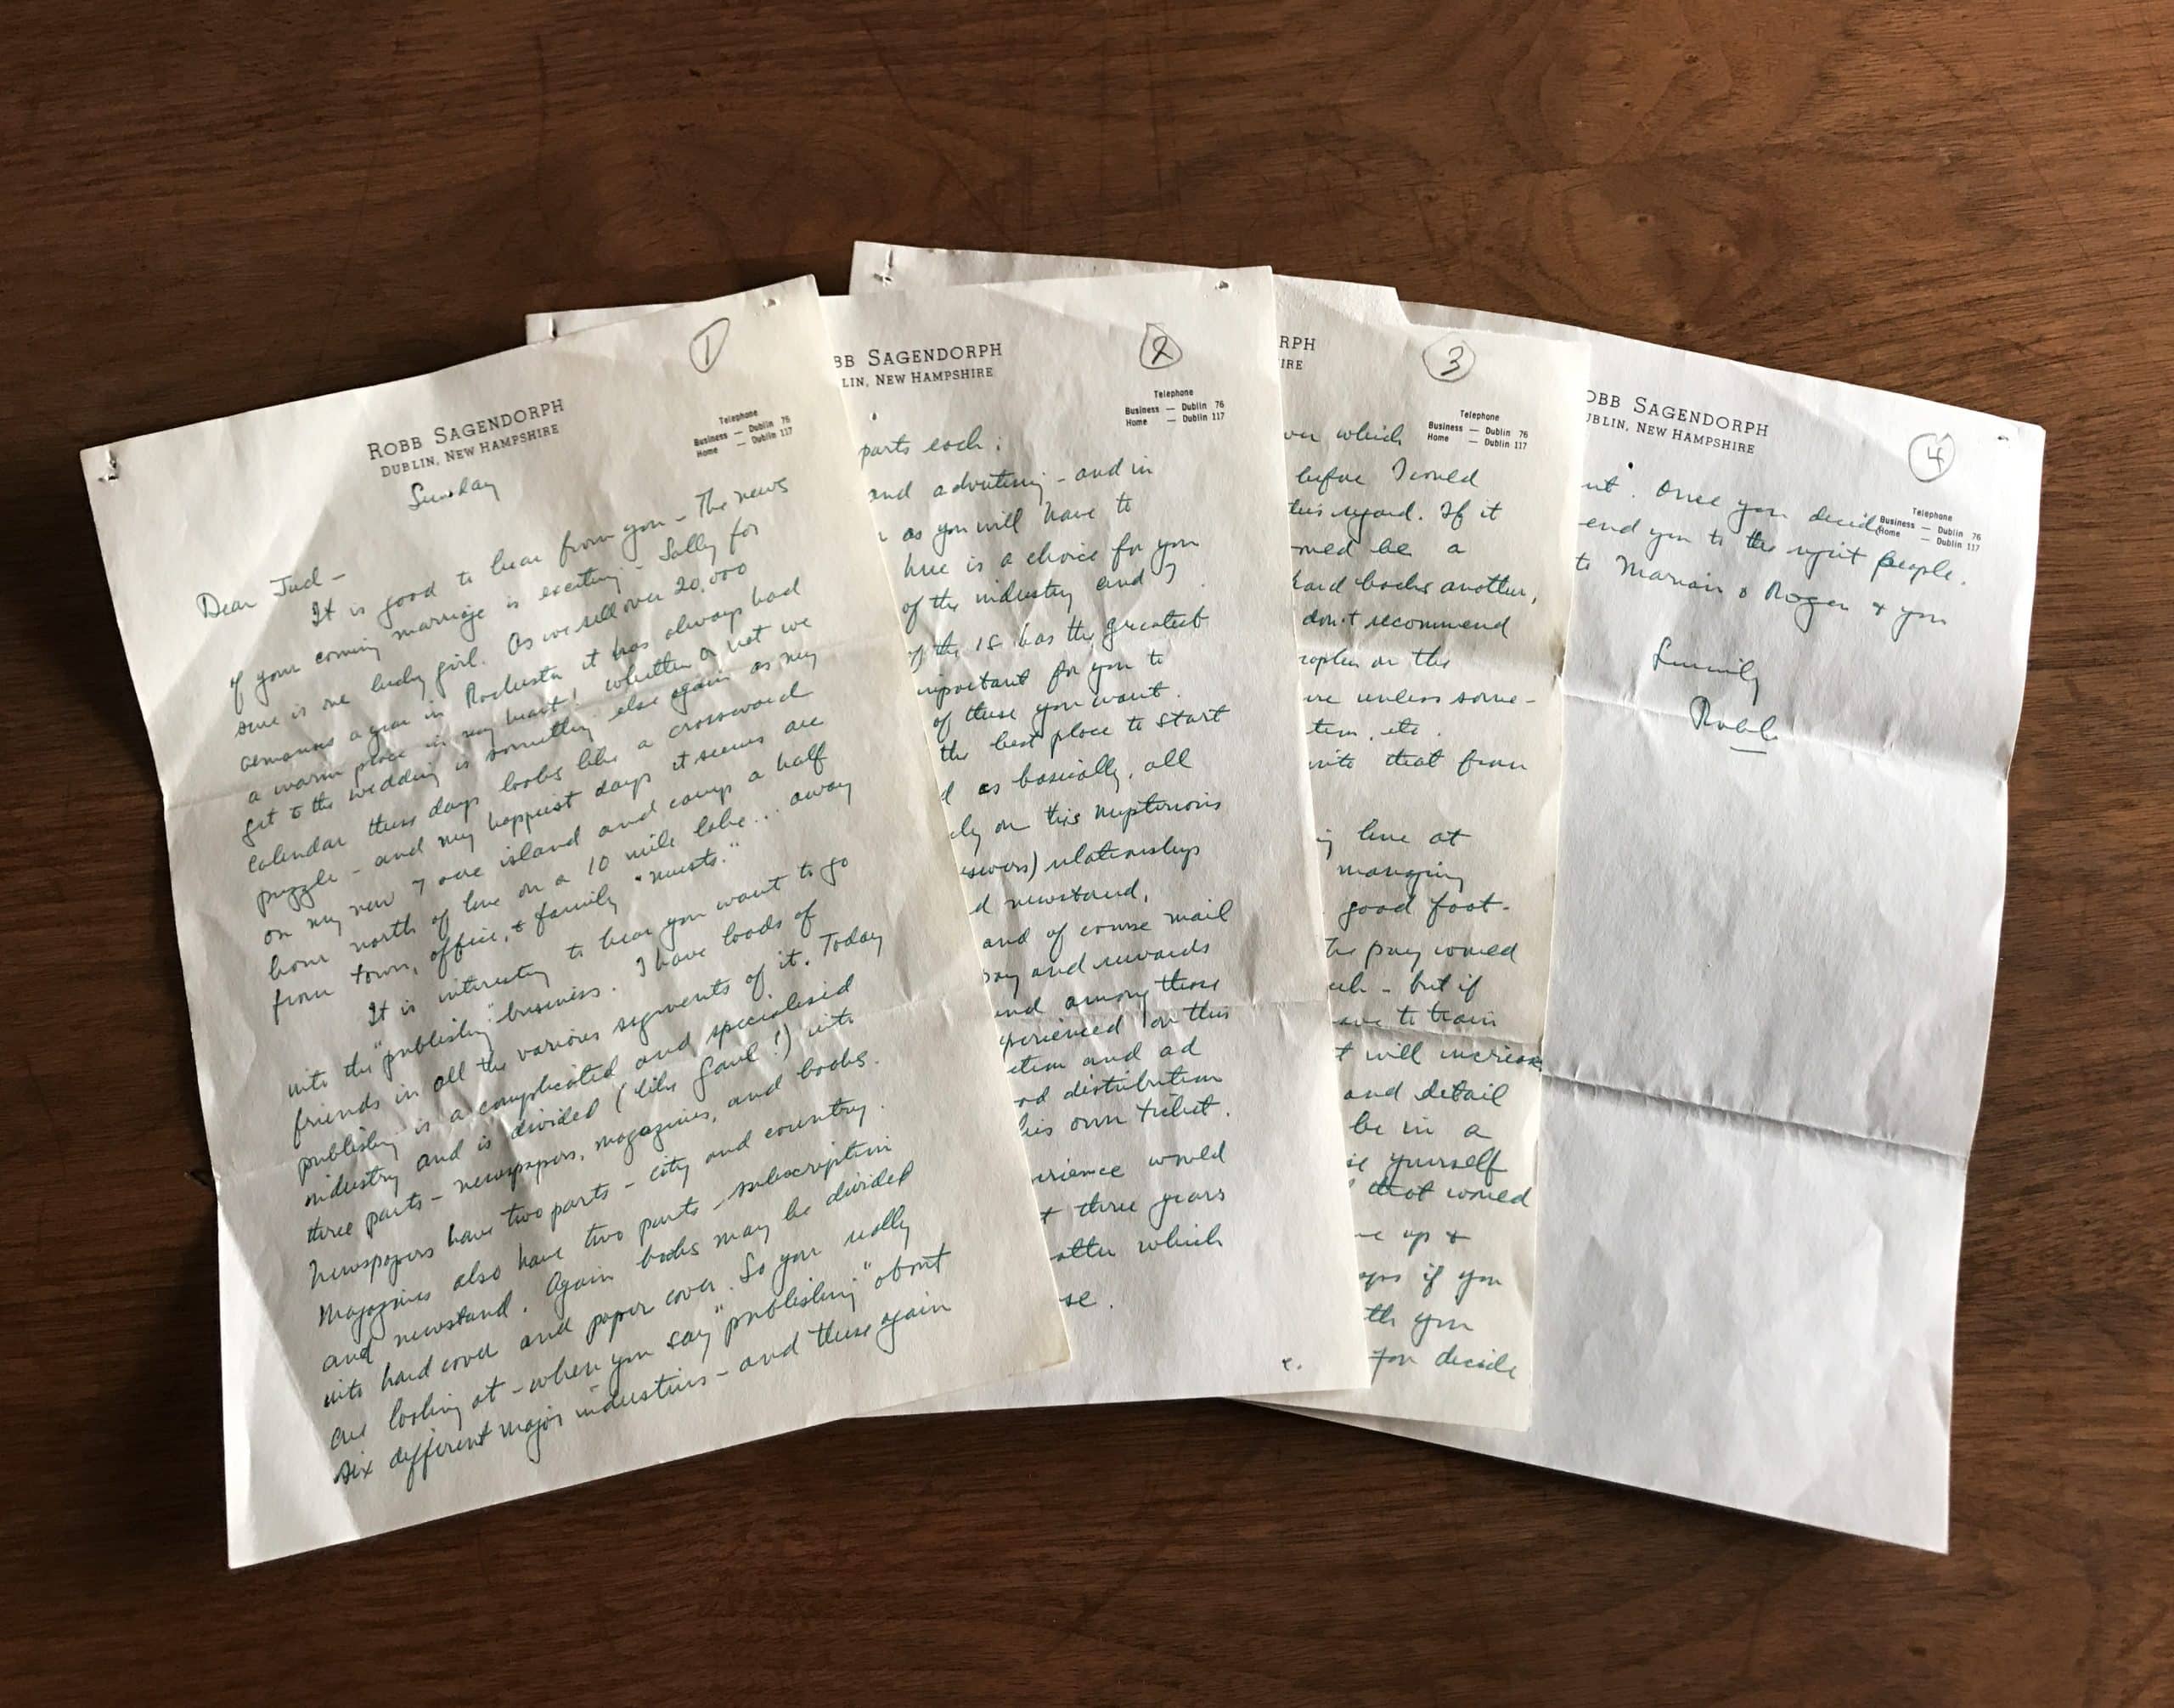 1
ROBB SAGENDORPH
DUBLIN, NEW HAMPSHIRE
Telephone
Business — Dublin 76
Home — Dublin 117
Sunday
Dear Jud –
It is good to hear from you – The news
of your coming marriage is exciting – Sally for
sure is one lucky girl. As we sell over 20,000
almanacs a year in Rochester it has always had
a warm place in my heart! Whether or not we
get to the wedding is something else again as my
calendar these days looks like a crossword
puzzle – and my happiest days it seems are
on my new 7 acre island and camp a half
hour north of here on a 10 mile lake... away
from town, office, & family "musts."
It is interesting to hear you want to go
into the "publishing" business. I have loads of
friends in all the various segments of it. Today
publishing is a complicated and specialized
industry and is divided (like Gaul!) into
three parts – newspapers, magazines, and books.
Newspapers have two parts – city and country.
Magazines also have two parts – subscription
and newstand. Again books may be divided
into hard cover and paper cover. So you really
are looking at – when you say "publishing" about
six different major industries – and these again
2
BB SAGENDORPH
LIN, NEW HAMPSHIRE
Telephone
Business — Dublin 76
Home — Dublin 117
parts each:
and advertising – and in
as you will have to
here is a choice for you
of the industry and
of the 18 has the greatest
important for you to
of these you want.
the best place to start
as basically, all
on this mysterious
relationships
d newstand,
and of course mail
pay and rewards
and among those
perienced on this
and ad
distribution
his own ticket.
erience would
t three years
which
se.
3
RPH
IRE
Telephone
Business — Dublin 76
Home — Dublin 117
which
before I would
this regard. If it
be a
hard backs another,
don't recommend
or the
unless some-
etc.
into that from
here at
managing
good foot-
the pay would
– but if
to train
t will increase
and detail
be in a
yourself
that would
up &
if you
th you
you decide
4
OBB SAGENDORPH
UBLIN, NEW HAMPSHIRE
Telephone
Business — Dublin 76
Home — Dublin 117
Once you decide
end you to the right people.
to Marian & Roger & you
Sincerely
Robb